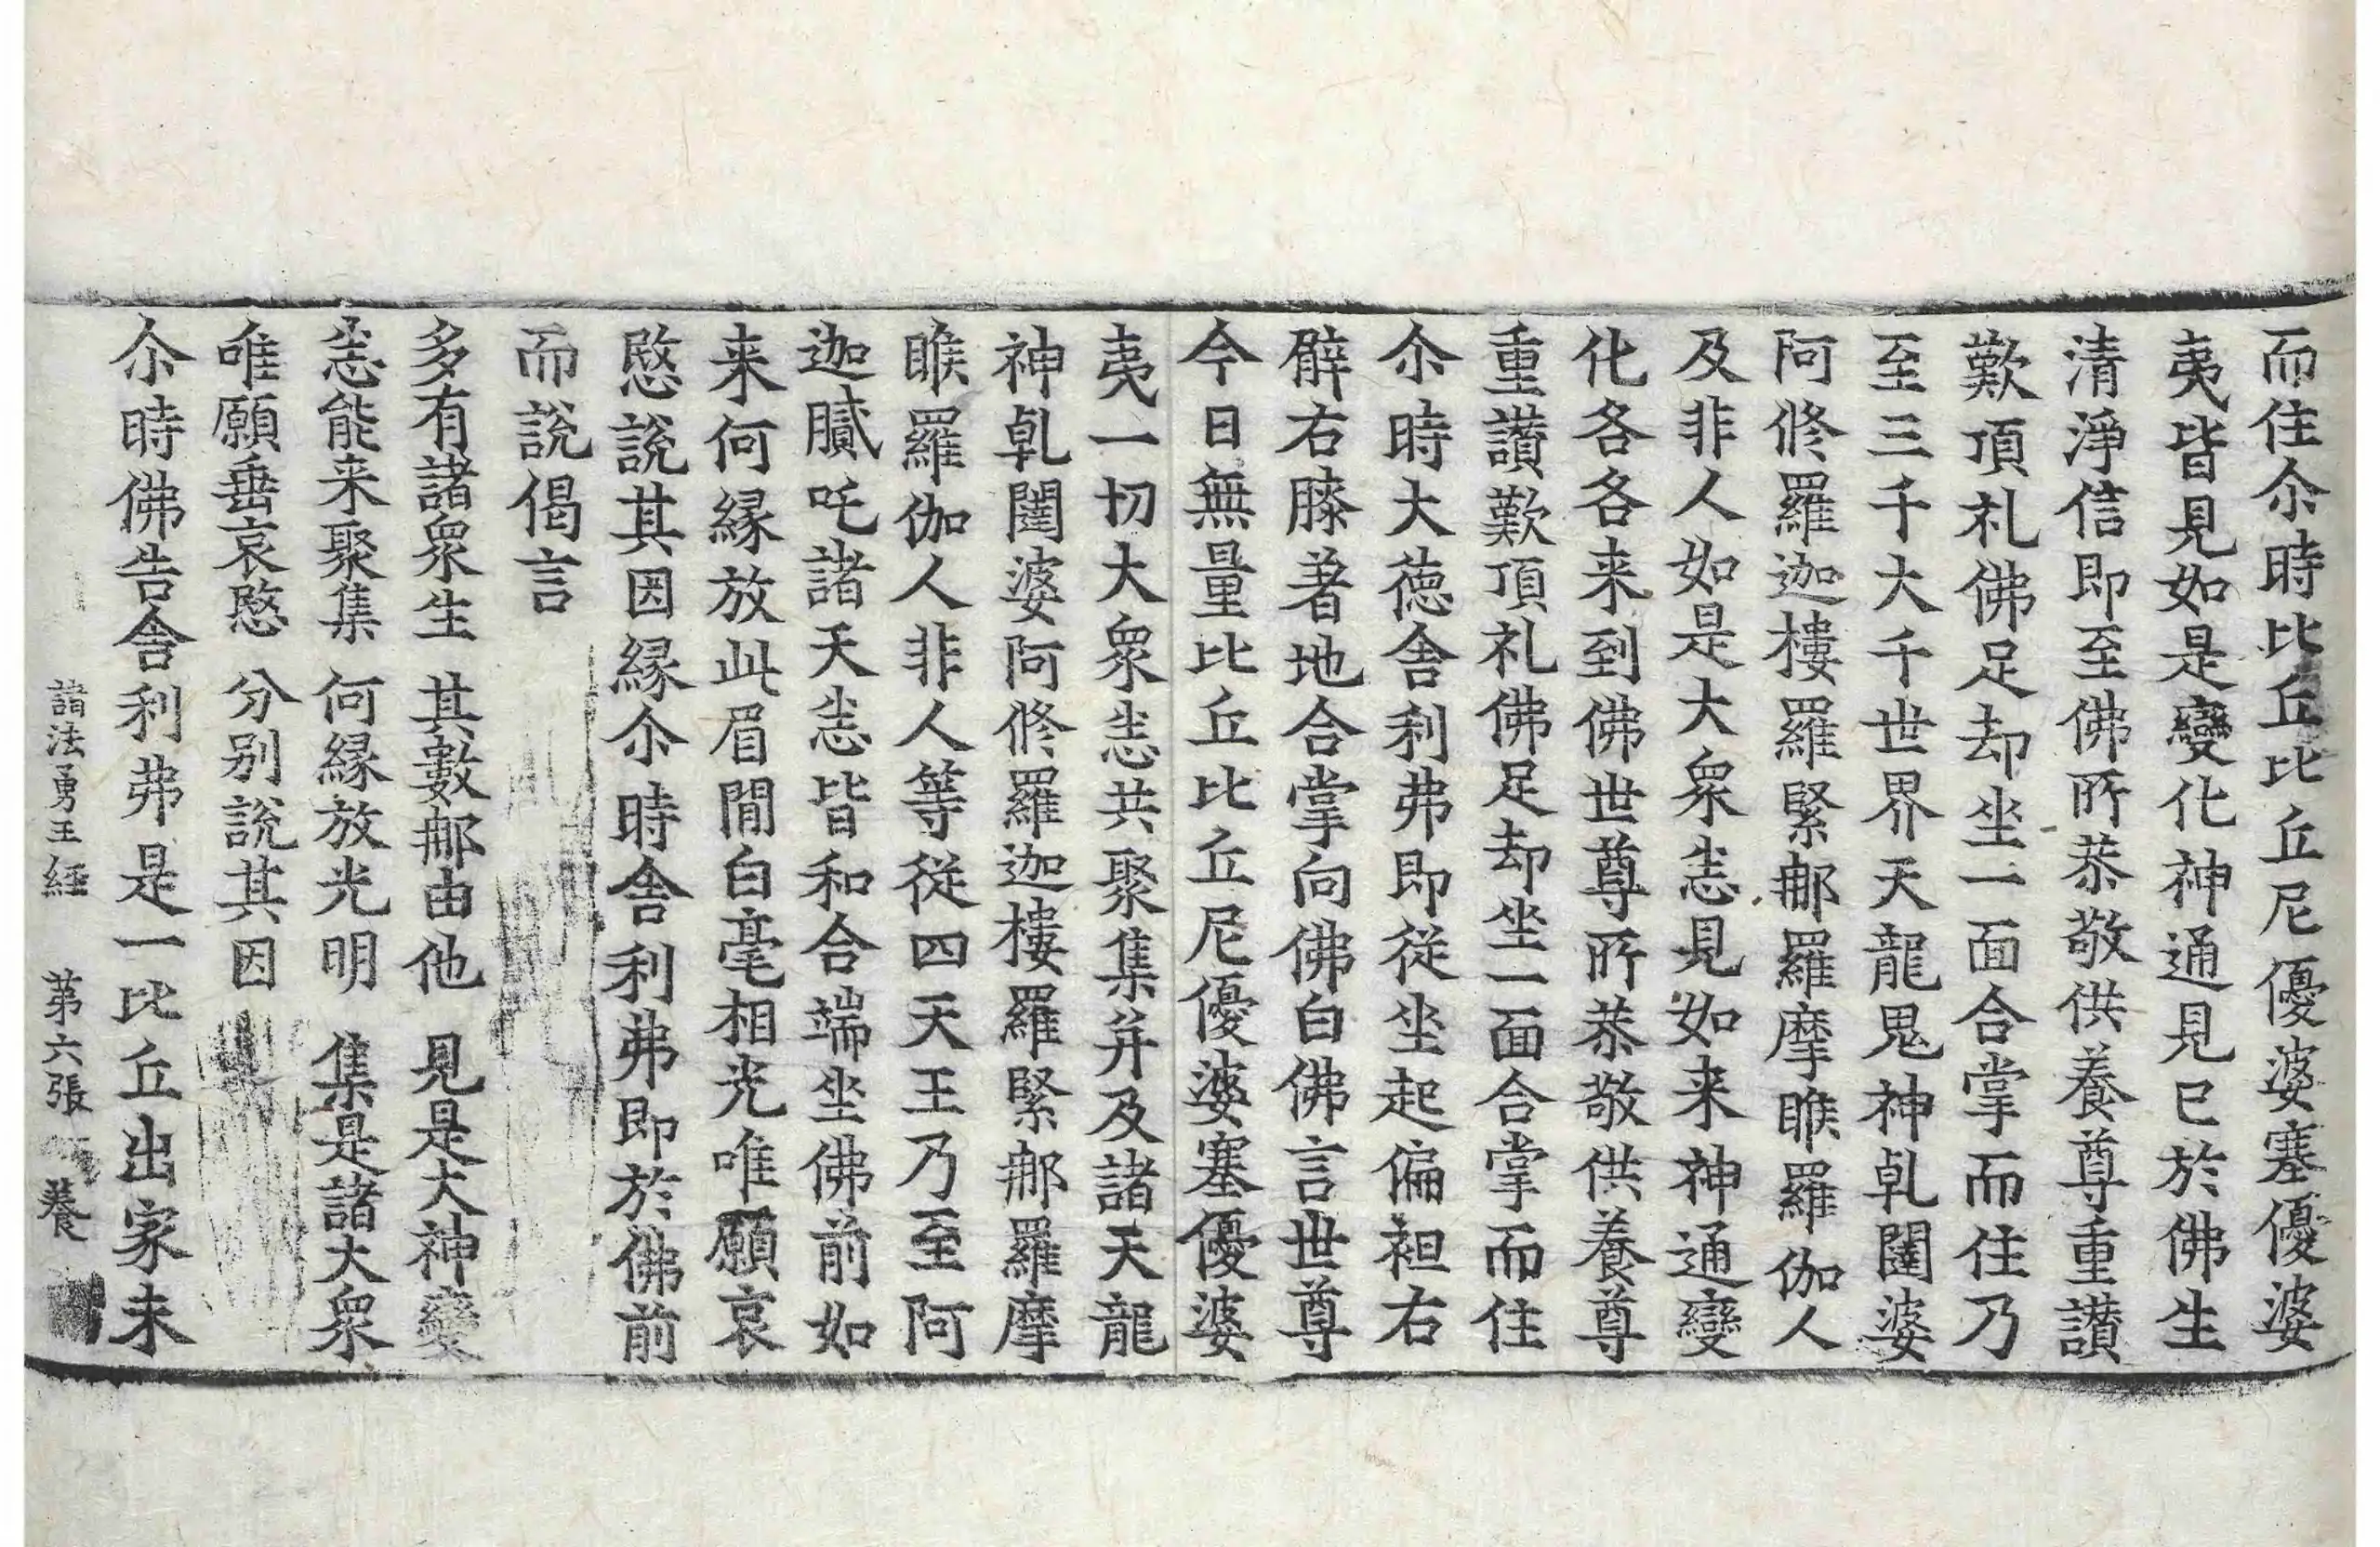 而住尒時比丘比丘尼優婆塞優婆
夷皆見如是變化神通見已於佛生
清淨信即至佛所恭敬供養尊重讃
歎頂礼佛足却坐一面合掌而住乃
至三千大千世界天龍鬼神乹闥婆
阿修羅迦樓羅緊那羅摩睺羅伽人
及非人如是大衆悉見如来神通變
化各各来到佛世尊所恭敬供養尊
重讃歎頂礼佛足却坐一面合掌而住
尒時大德舍利弗即從坐起偏袒右
臂右膝著地合掌向佛白佛言世尊
今日無量比丘比丘尼優婆塞優婆
夷一切大衆悉共聚集并及諸天龍
神乹闥婆阿修羅迦樓羅緊那羅摩
睺羅伽人非人等從四天王乃至阿
迦膩吒諸天悉皆和合端坐佛前如
来何縁放此眉間白毫相光唯願哀
愍說其因縁尒時舍利弗即於佛前
而說偈言
多有諸衆生　其數那由他　見是大神變
悉能来聚集　何縁放光明　集是諸大衆
唯願垂哀愍　分別說其因
尒時佛告舍利弗是一比丘出家未
諸法勇王經　第六張　養